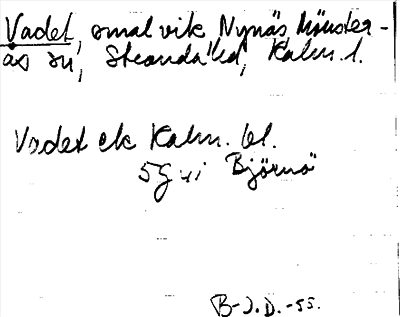 Vadet, smal vik Nynäs, Mönster-
ås sn, Stranda hd, Kalm. l.
Vadet ek Kalm. bl.
5g Björnö
B-J.D.-55.